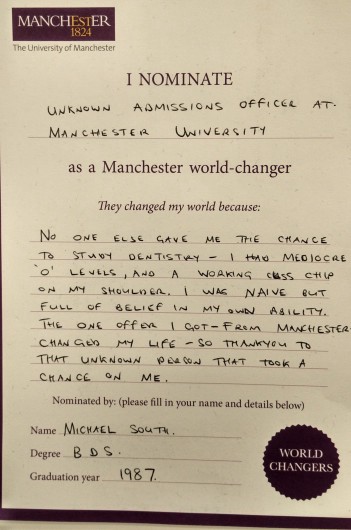 MANCHESTER
1824
The University of Manchester
I NOMINATE
UNKNOWN ADMISSIONS OFFICER AT
MANCHESTER UNIVERSITY
as a Manchester world-changer
They changed my world because:
NO ONE ELSE GAVE ME THE CHANCE
TO STUDY DENTISTRY - I HAD MEDIOCRE
'O' LEVELS, AND A WORKING CLASS CHIP
ON MY SHOULDER. I WAS NAIVE BUT
FULL OF BELIEF IN MY OWN ABILITY.
THE ONE OFFER I GOT - FROM MANCHESTER
CHANGED MY LIFE - SO THANKYOU TO
THAT UNKNOWN PERSON THAT TOOK A
CHANCE ON ME.
Nominated by: (please fill in your name and details below)
Name MICHAEL SOUTH.
Degree B D S.
Graduation year 1987.
WORLD
CHANGERS